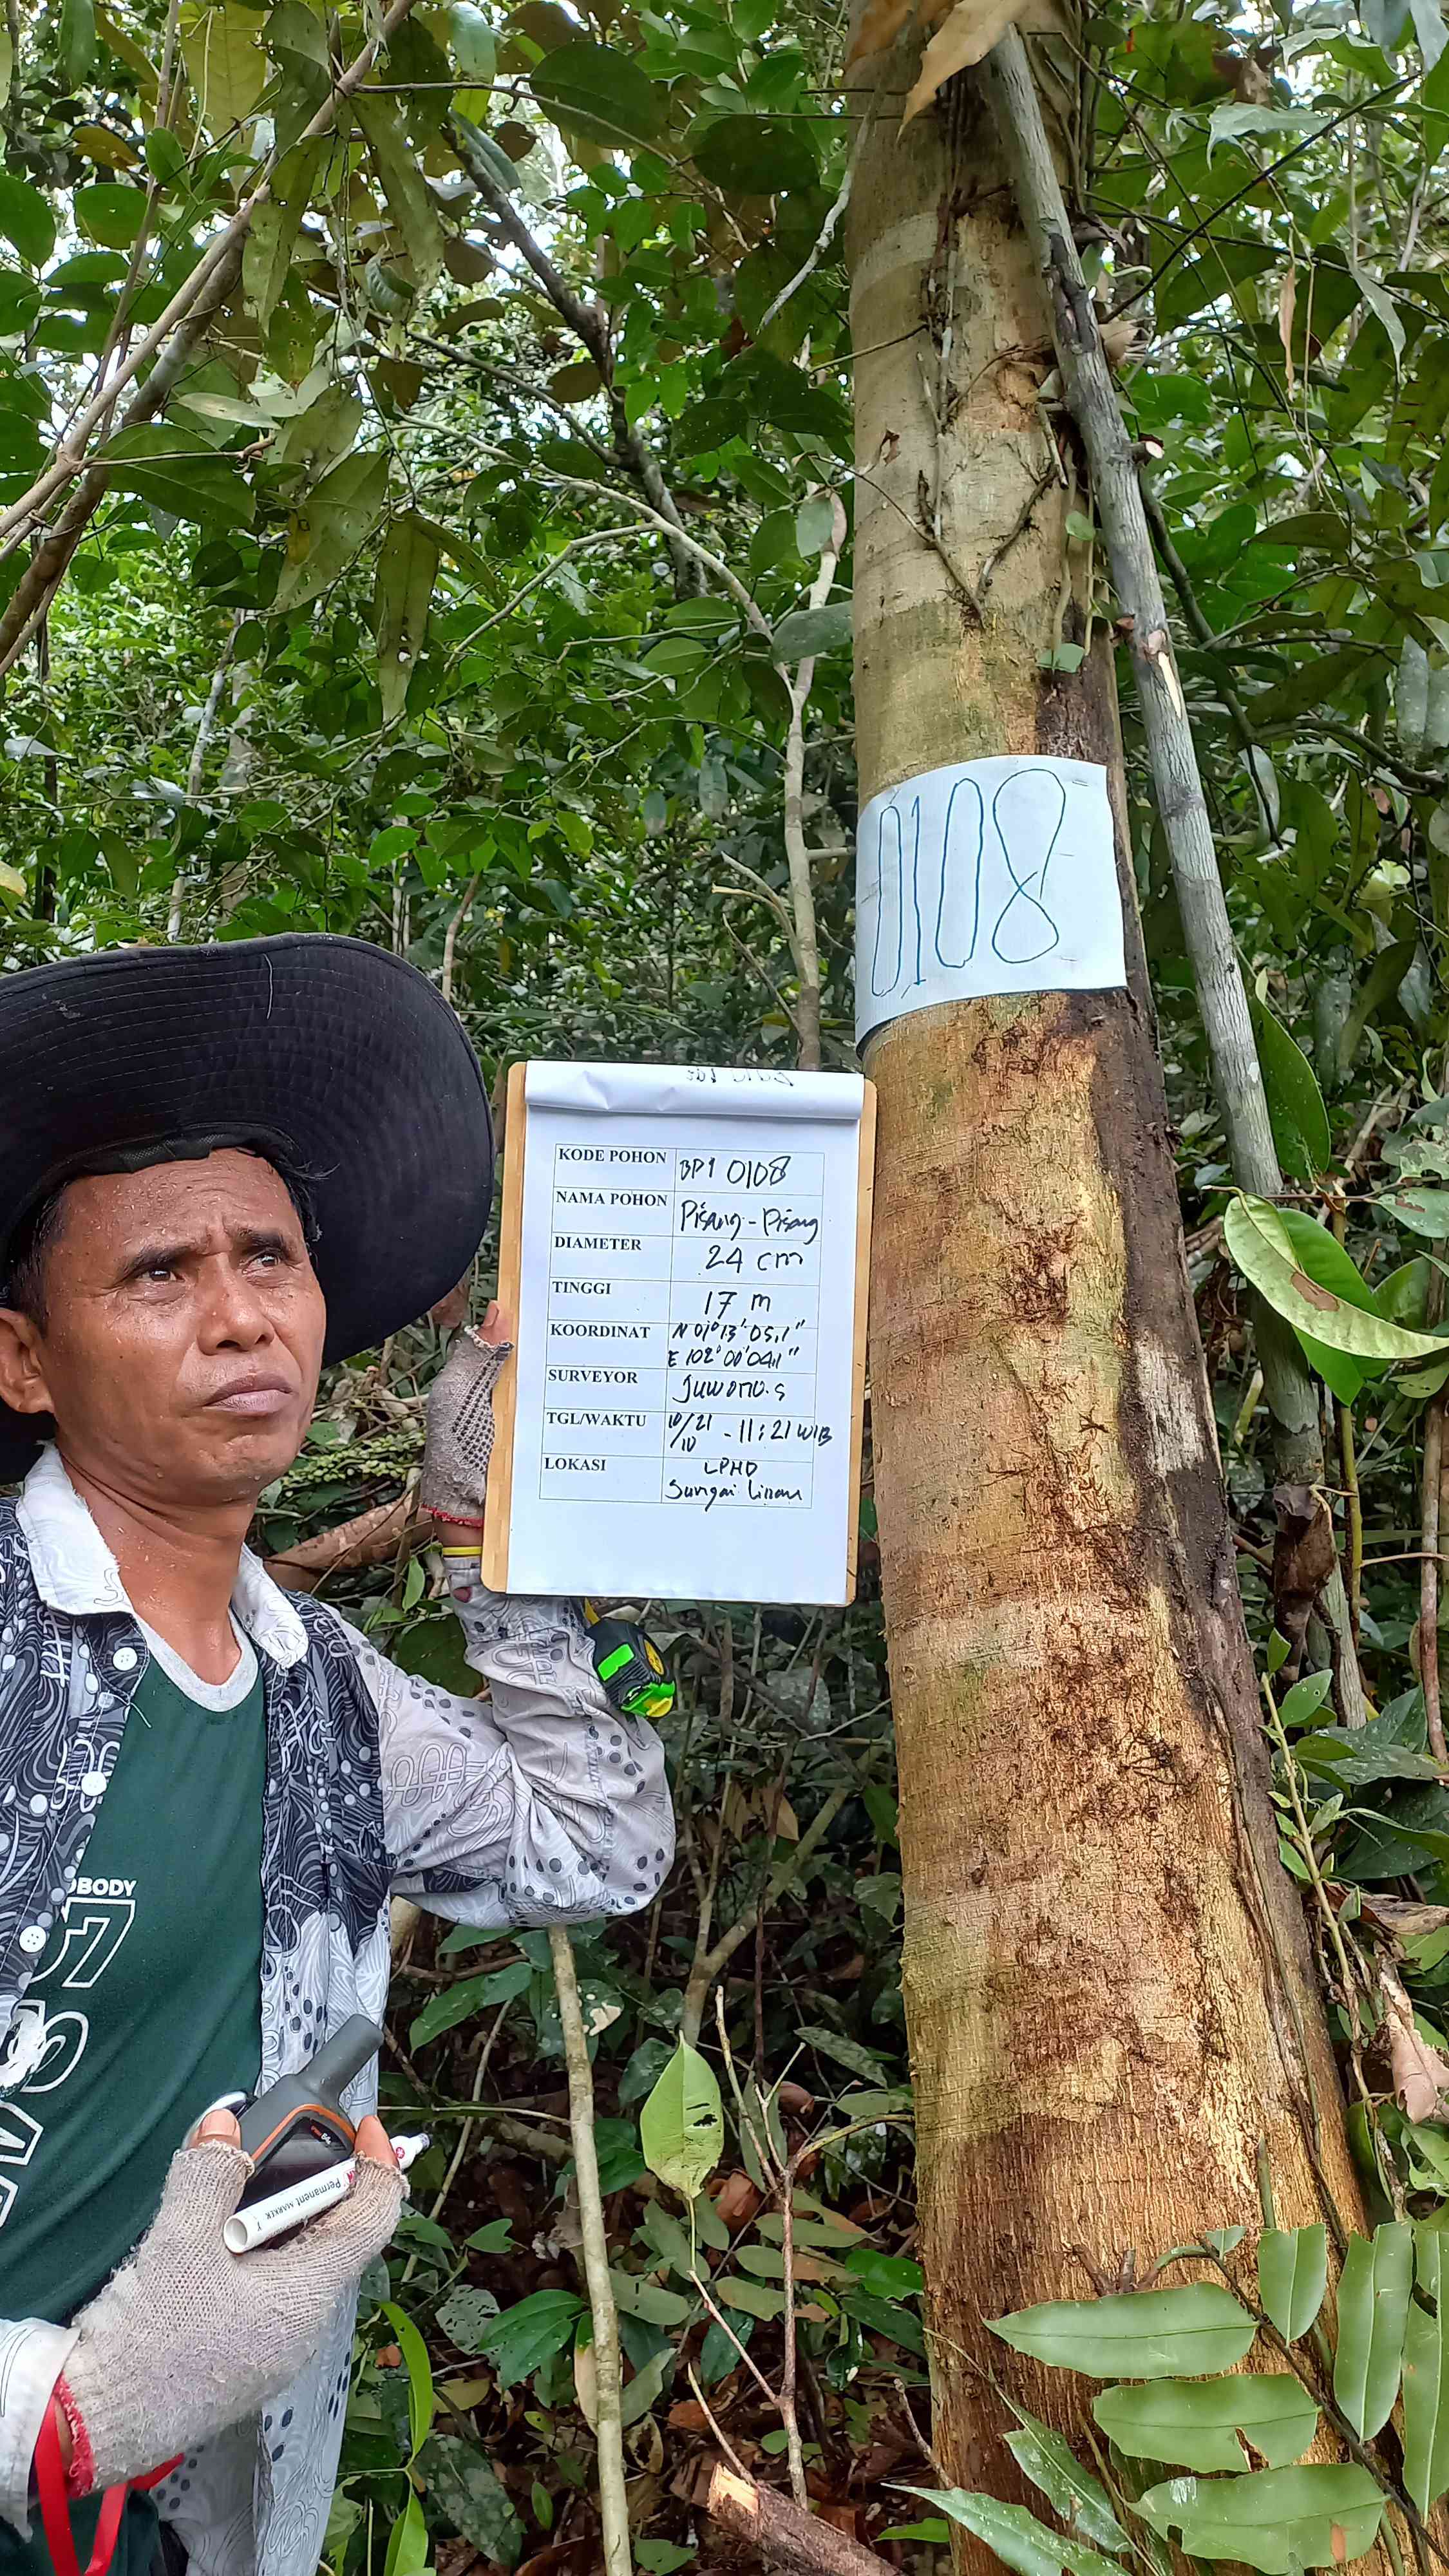 0108
KODE POHON BP1 0108
NAMA POHON Pisang-Pisang
DIAMETER 24 cm
TINGGI 17 m
KOORDINAT N 01°13'05,1"
E 102°00'04,1"
SURVEYOR Juwono.s
TGL/WAKTU 10/21 - 11:21 WIB
/10
LOKASI LPHD
Sungai Linau
OBODY
07
Permanent MARKER